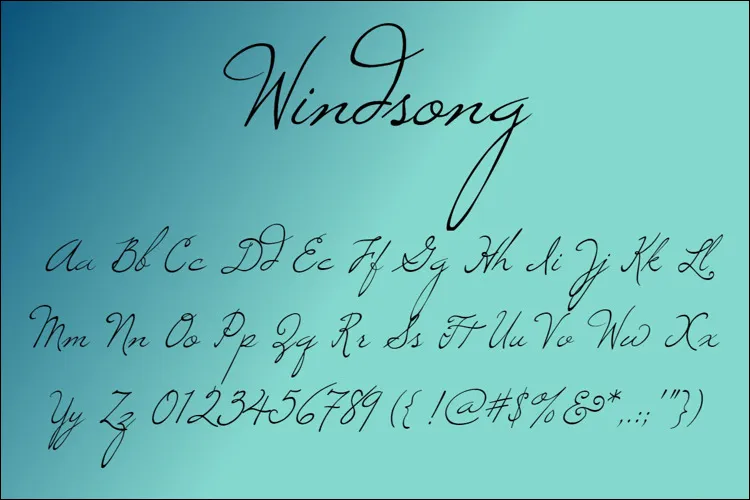 Windsong
Aa Bb Cc Dd Ee Ff Gg Hh Ii Jj Kk Ll
Mm Nn Oo Pp Qq Rr Ss Tt Uu Vv Ww Xx
Yy Zz 0123456789 ({ !@#$%&*,.:; '"})